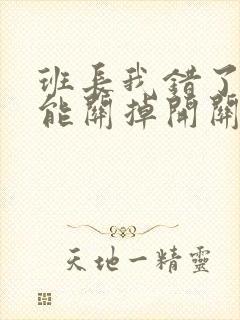 班长我错了
能關掉開關
天地一精靈